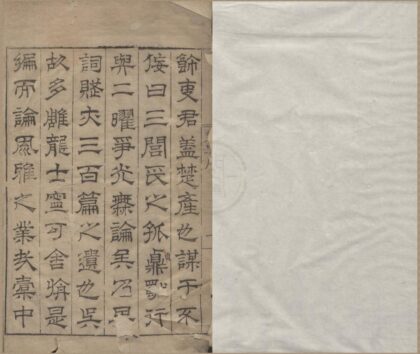 吏君蓋楚產也謀于不
佞曰三閭氏之鼎行
與二曜爭光無論矣乃其
詞賦夫三百篇之遺也吳
故多雕龍士寧可舍旃是
編而論風雅之業橐中